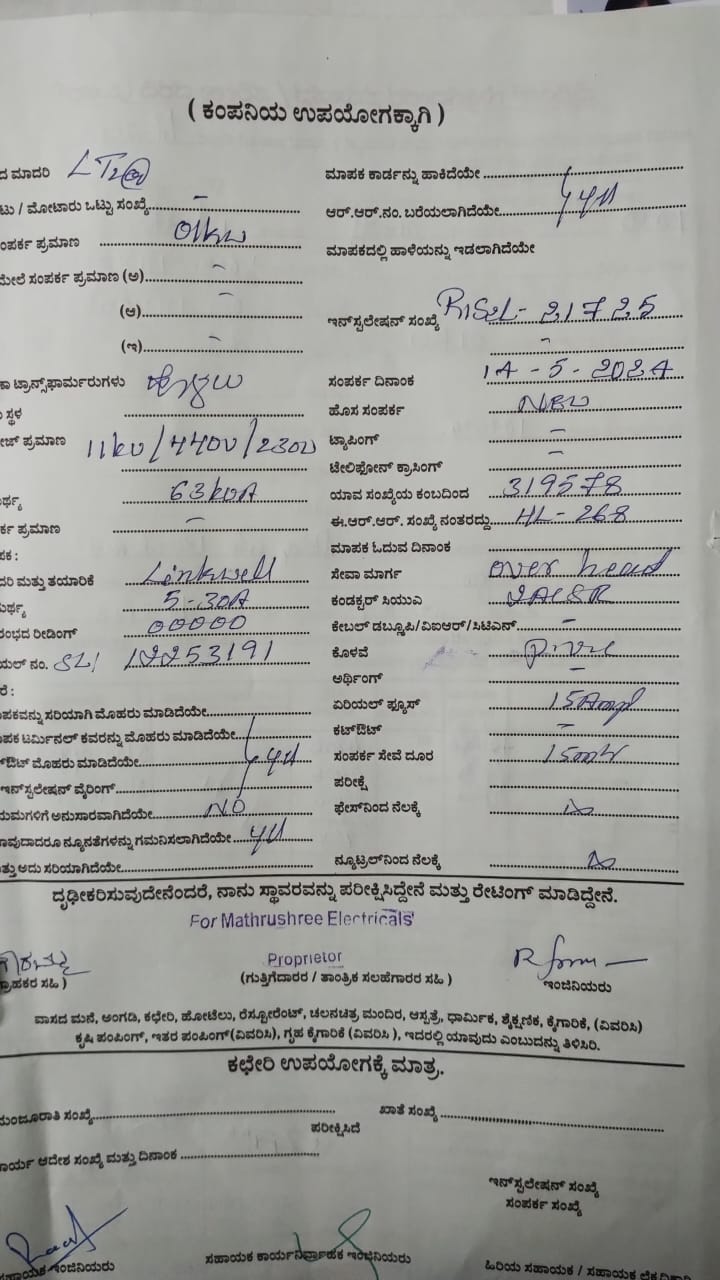 ( ಕಂಪನಿಯ ಉಪಯೋಗಕ್ಕಾಗಿ )
ದ ಮಾದರಿ LT2(a) ಮಾಪಕ ಕಾರ್ಡನ್ನು ಹಾಕಿದೆಯೇ
ಟು / ಮೋಟಾರು ಒಟ್ಟು ಸಂಖ್ಯೆ - ಆರ್.ಆರ್.ನಂ. ಬರೆಯಲಾಗಿದೆಯೇ
ಂಪರ್ಕ ಪ್ರಮಾಣ 01kw ಮಾಪಕದಲ್ಲಿ ಹಾಳೆಯನ್ನು ಇಡಲಾಗಿದೆಯೇ
ಮೇಲೆ ಸಂಪರ್ಕ ಪ್ರಮಾಣ (ಅ) -
(ಆ) - ಇನ್‌ಸ್ಟಲೇಷನ್ ಸಂಖ್ಯೆ 21725
(ಇ) - -
ಾ ಟ್ರಾನ್ಸ್‌ಫಾರ್ಮರುಗಳು ಸಂಪರ್ಕ ದಿನಾಂಕ 14-5-2024
ಸ್ಥಳ ಹೊಸ ಸಂಪರ್ಕ NEW
ೇಜ್ ಪ್ರಮಾಣ 11kv/440v/230v ಟ್ಯಾಪಿಂಗ್ -
ಟೇಲಿಫೋನ್ ಕ್ರಾಸಿಂಗ್ -
ರ್ಥ್ಯ 63kvA ಯಾವ ಸಂಖ್ಯೆಯ ಕಂಬದಿಂದ 319578
ರ್ಕ ಪ್ರಮಾಣ - ಈ.ಆರ್.ಆರ್. ಸಂಖ್ಯೆ ನಂತರದ್ದು HL-268
ಪಕ : ಮಾಪಕ ಓದುವ ದಿನಾಂಕ
ದರಿ ಮತ್ತು ತಯಾರಿಕೆ Linkwell ಸೇವಾ ಮಾರ್ಗ over head
ಮರ್ಥ್ಯ 5-30A ಕಂಡಕ್ಟರ್ ಸಿಯುಎ
ರಂಭದ ರೀಡಿಂಗ್ 00000 ಕೇಬಲ್ ಡಬ್ಲೂಪಿ/ವಿಐಆರ್/ಸಿಟಿಎಸ್ -
ಯಲ್ ನಂ. SL1 12253191 ಕೊಳವೆ
ರೆ : ಅರ್ಥಿಂಗ್ -
ಾಪಕವನ್ನು ಸರಿಯಾಗಿ ಮೊಹರು ಮಾಡಿದೆಯೇ ಏರಿಯಲ್ ಫ್ಯೂಸ್ 15Amp
ಾಪಕ ಟರ್ಮಿನಲ್ ಕವರನ್ನು ಮೊಹರು ಮಾಡಿದೆಯೇ ಕಟ್‌ಔಟ್ -
ಔಟ್ ಮೊಹರು ಮಾಡಿದೆಯೇ ಸಂಪರ್ಕ ಸೇವೆ ದೂರ 15mtr
ಇನ್‌ಸ್ಟಲೇಷನ್ ವೈರಿಂಗ್ ಪರೀಕ್ಷೆ
ಯಮಗಳಿಗೆ ಅನುಸಾರವಾಗಿದೆಯೇ NO ಫೇಸ್‌ನಿಂದ ನೆಲಕ್ಕೆ
ಾವುದಾದರೂ ನ್ಯೂನತೆಗಳನ್ನು ಗಮನಿಸಲಾಗಿದೆಯೇ
ತ್ತು ಅದು ಸರಿಯಾಗಿದೆಯೇ ನ್ಯೂಟ್ರಲ್‌ನಿಂದ ನೆಲಕ್ಕೆ
ದೃಢೀಕರಿಸುವುದೇನೆಂದರೆ, ನಾನು ಸ್ಥಾವರವನ್ನು ಪರೀಕ್ಷಿಸಿದ್ದೇನೆ ಮತ್ತು ರೇಟಿಂಗ್ ಮಾಡಿದ್ದೇನೆ.
For Mathrushree Electricals
Proprietor
್ರಾಹಕರ ಸಹಿ ) (ಗುತ್ತಿಗೆದಾರರ / ತಾಂತ್ರಿಕ ಸಲಹೆಗಾರರ ಸಹಿ ) ಇಂಜಿನಿಯರು
ವಾಸದ ಮನೆ, ಅಂಗಡಿ, ಕಛೇರಿ, ಹೋಟೆಲು, ರೆಸ್ಟೋರೆಂಟ್, ಚಲನಚಿತ್ರ ಮಂದಿರ, ಆಸ್ಪತ್ರೆ, ಧಾರ್ಮಿಕ, ಶೈಕ್ಷಣಿಕ, ಕೈಗಾರಿಕೆ, (ವಿವರಿಸಿ)
ಕೃಷಿ ಪಂಪಿಂಗ್, ಇತರ ಪಂಪಿಂಗ್(ವಿವರಿಸಿ), ಗೃಹ ಕೈಗಾರಿಕೆ (ವಿವರಿಸಿ ), ಇದರಲ್ಲಿ ಯಾವುದು ಎಂಬುದನ್ನು ತಿಳಿಸಿರಿ.
ಕಛೇರಿ ಉಪಯೋಗಕ್ಕೆ ಮಾತ್ರ.
ಮಂಜೂರಾತಿ ಸಂಖ್ಯೆ ಖಾತೆ ಸಂಖ್ಯೆ
ಪರೀಕ್ಷಿಸಿದೆ
ಾರ್ಯ ಆದೇಶ ಸಂಖ್ಯೆ ಮತ್ತು ದಿನಾಂಕ
ಇನ್‌ಸ್ಟಲೇಷನ್ ಸಂಖ್ಯೆ
ಸಂಪರ್ಕ ಸಂಖ್ಯೆ
ಸಹಾಯಕ ಇಂಜಿನಿಯರು ಸಹಾಯಕ ಕಾರ್ಯನಿರ್ವಾಹಕ ಇಂಜಿನಿಯರು ಹಿರಿಯ ಸಹಾಯಕ / ಸಹಾಯಕ